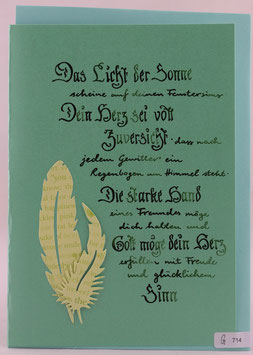 Das Licht der Sonne
scheine auf deinen Fenstersims
Dein Herz sei voll
Zuversicht - dass nach
jedem Gewitter ein
Regenbogen am Himmel steht.
Die starke Hand
eines Freundes möge
dich halten und
Gott möge dein Herz
erfüllen mit Freude
und glücklichem
Sinn
G 714